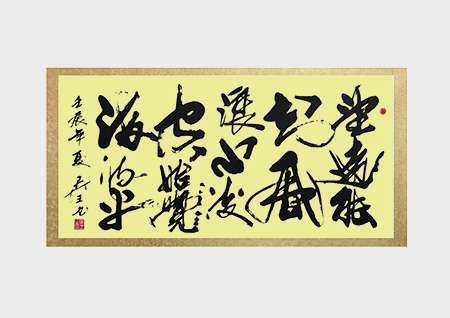 望遠能
知風
浪小凌
空始覺
海波平
壬辰年夏